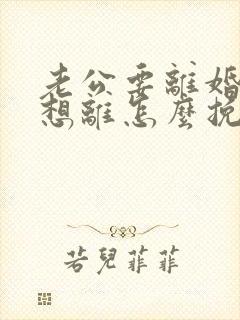 老公要離婚
想離怎麼挽
若兒菲菲